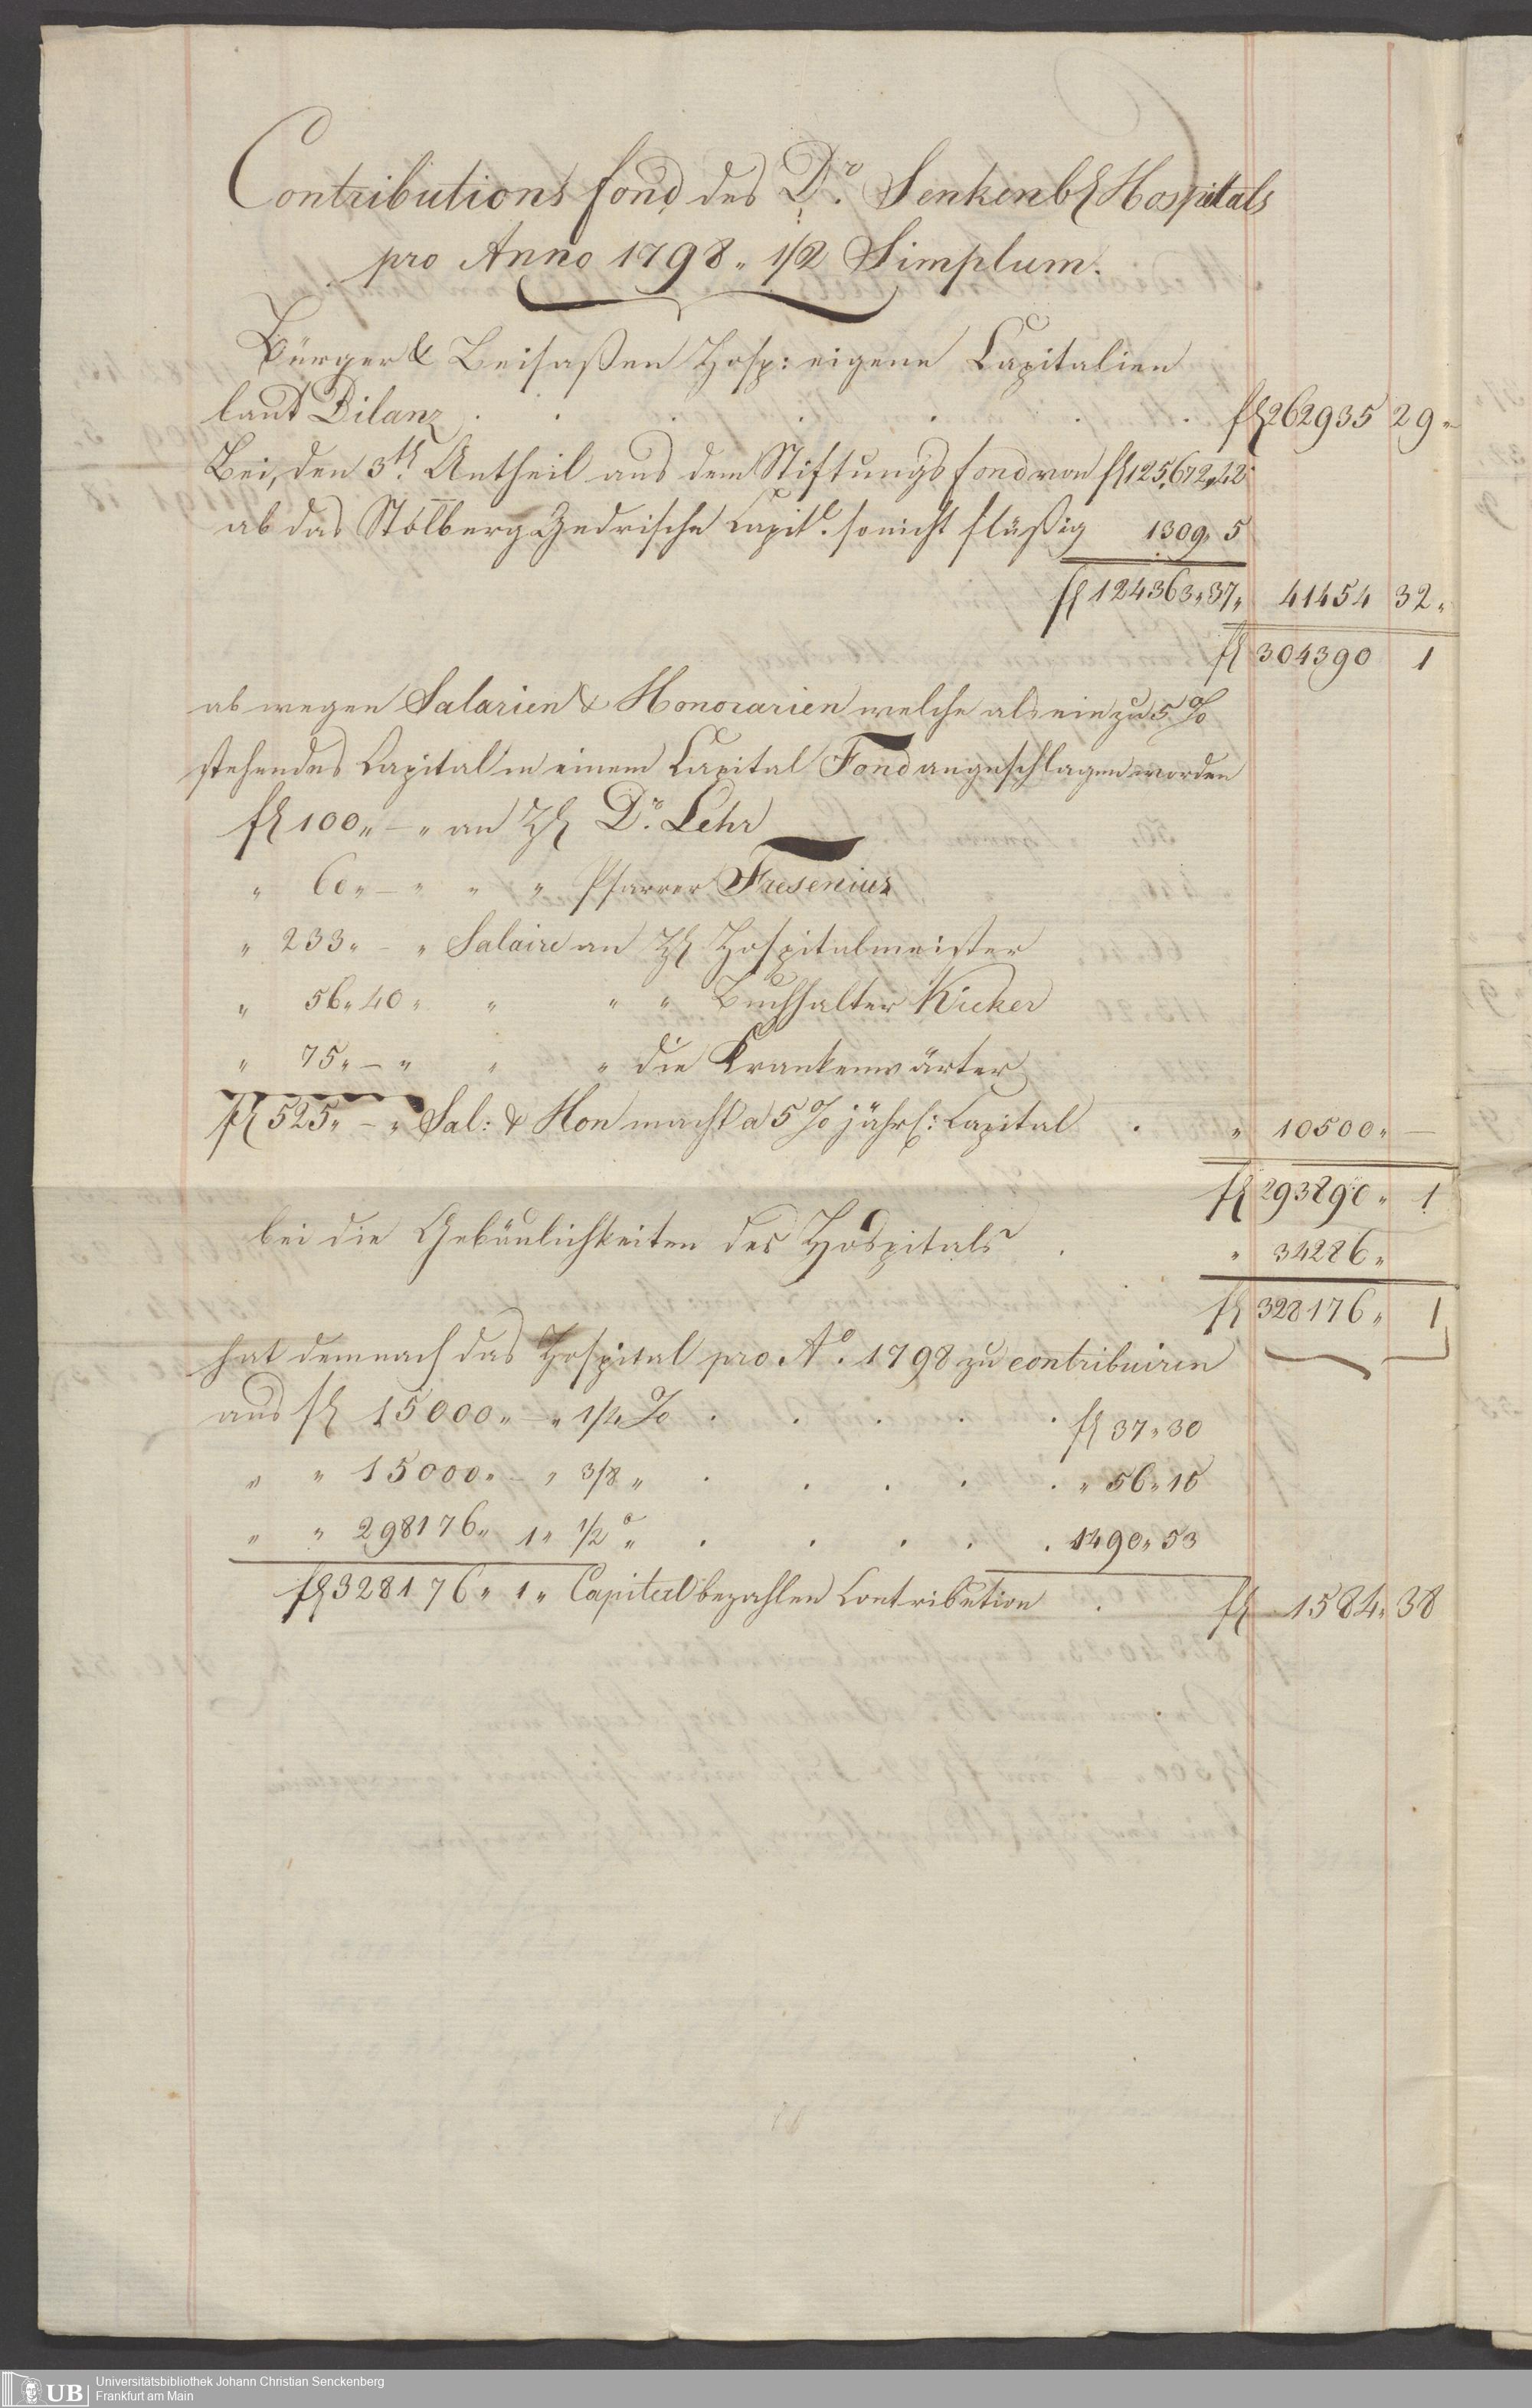 Contributions fond des Dr. Senkenb Hospitals
pro Anno 1798 „ 1/2 Simplum.
Bürger & Beisaßen Hosp: eigene Capitalien
laut Bilanz . . . . . . . f 262935 29 „
Bei, den 3t Antheil aus dem Stiftungs fond von f 125,672 „ 42
ab das Stolberg Gedrische Capitl. so nicht flüßig 1309 „ 5
f 124363 „ 37 „ 41454 32 „
f 304390 1
ab wegen Salarien & Honorarien welche als ein zu 5 %
stehendes Capital in einem Capital Fond angeschlagen worden
f 100 „ – „ an H Dr. Lehr
„ 60 „ – „ „ „ Pfarrer Fresenius
„ 233 „ – „ Salaire an H Hospitalmeister
„ 56 „ 40 „ „ „ „ Buchhalter Kicker
„ 75 „ – „ „ „ die Krankenwärter
f 525 „ – „ Sal: & Hon macht a 5 % jährl: Capital . „ 10500 „ –
f 293890 „ 1
bei die Gebäulichkeiten des Hospitals . „ 34286 „
f 328176 „ 1
hat demnach das Hospital pro Ao. 1798 zu contribuiren
aus f 15000 „ – „ 1/4 % . . . . . f 37 „ 30
„ „ 15000 „ – „ 3/8 „ . . . . . „ 56 „ 15
„ „ 298176 „ 1 „ 1/2 „ . . . . . 1490 „ 53
f 328176 „ 1 „ Capital bezahlen Contribution . f 1584 „ 38
UB Universitätsbibliothek Johann Christian Senckenberg
Frankfurt am Main